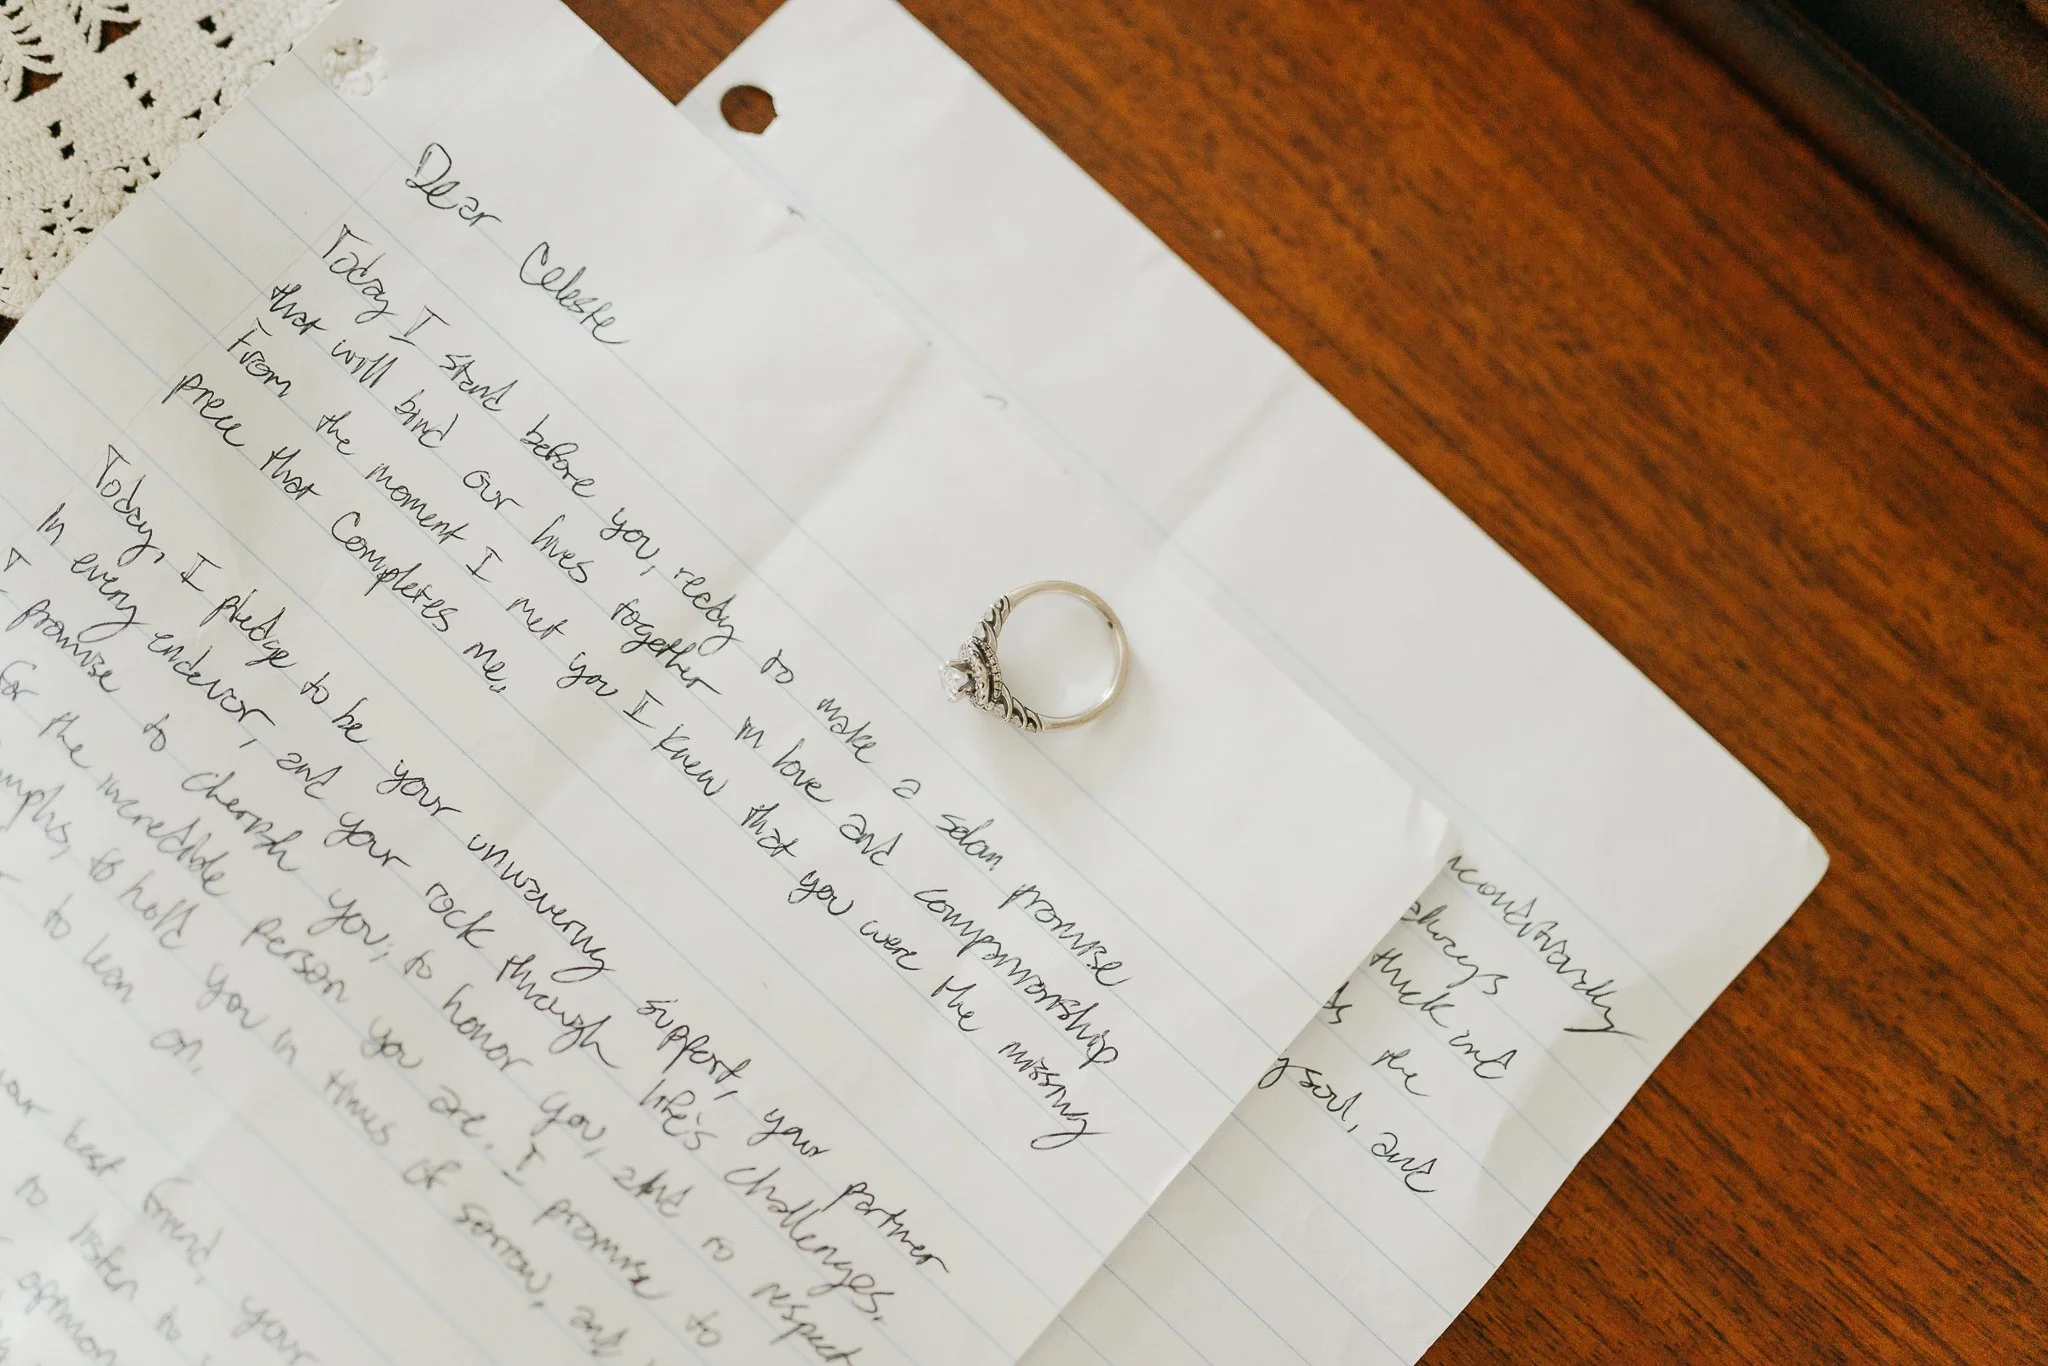 Dear Celeste
Today I stand before you, ready to make a solom promise
that will bind our lives together in love and companionship
From the moment I met you I knew that you were the missing
piece that completes me.
Today, I pledge to be your unwavering support, your partner
in every endevor, and your rock through life's challenges.
I promise to cherish you, to honor you, and to respect
for the incredible person you are. I promise to
to hold you in times of sorrow, and
to lean on.
your best friend, your
to listen to
always
thick and
the
soul, and